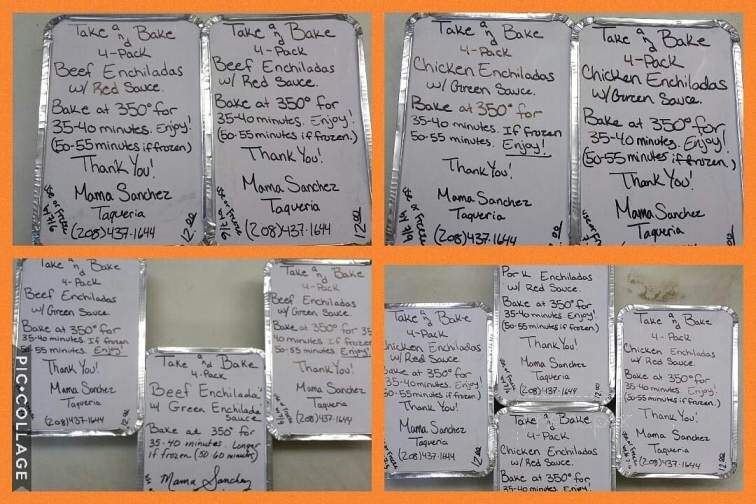 Take and Bake
4-Pack
Beef Enchiladas
w/ Red Sauce.
Bake at 350° for
35-40 minutes. Enjoy!
(50-55 minutes if frozen.)
Thank You!
Mama Sanchez
Taqueria
(208)437-1644
12.00
Use or Freeze
Take and Bake
4-Pack
Beef Enchiladas
w/ Red Sauce.
Bake at 350° for
35-40 minutes. Enjoy!
(50-55 minutes if frozen.)
Thank You!
Mama Sanchez
Taqueria
(208)437-1644
12.00
Use or Freeze
Take and Bake
4-Pack
Chicken Enchiladas
w/ Green Sauce.
Bake at 350° for
35-40 minutes. If frozen
50-55 minutes. Enjoy!
Thank You!
Mama Sanchez
Taqueria
(208)437-1644
12.00
Use or Freeze
Take and Bake
4-Pack
Chicken Enchiladas
w/Green Sauce.
Bake at 350° for
35-40 minutes. Enjoy!
(50-55 minutes if frozen.)
Thank You!
Mama Sanchez
Taqueria
(208)437-1644
Take and Bake
4-Pack
Beef Enchiladas
w/ Green Sauce.
Bake at 350° for
35-40 minutes. If frozen
50-55 minutes. Enjoy!
Thank You!
Mama Sanchez
Taqueria
(208)437-1644
12.00
Take and Bake
4-Pack
Beef Enchilada's
w/ Green Enchilada
Sauce
Bake at 350° for
35-40 minutes. Longer
if frozen (50 60 minutes)
Mama Sanchez
Take and Bake
4-Pack
Beef Enchiladas
w/ Green Sauce.
Bake at 350° for 35
40 minutes. If frozen
50-55 minutes. Enjoy!
Thank You!
Mama Sanchez
Taqueria
(208)437-1644
Take and Bake
4-Pack
Chicken Enchiladas
w/ Red Sauce
Bake at 350° for
35-40 minutes. Enjoy!
50-55 minutes if frozen.)
Thank You!
Mama Sanchez
Taqueria
(208)437-1644
12.00
Pork Enchiladas
w/ Red Sauce.
Bake at 350° for
35-40 minutes Enjoy!
(50-55 minutes if frozen)
Thank You!
Mama Sanchez
Taqueria
(208)437-1644
12.00
Take and Bake
4-Pack
Chicken Enchiladas
w/ Red Sauce.
Bake at 350° for
Take and Bake
4-Pack
Chicken Enchiladas
w/ Red Sauce.
Bake at 350° for
35-40 minutes. Enjoy!
(50-55 minutes if frozen.)
Thank You!
Mama Sanchez
Taqueria
(208)437-1644
12.00
PIC•COLLAGE